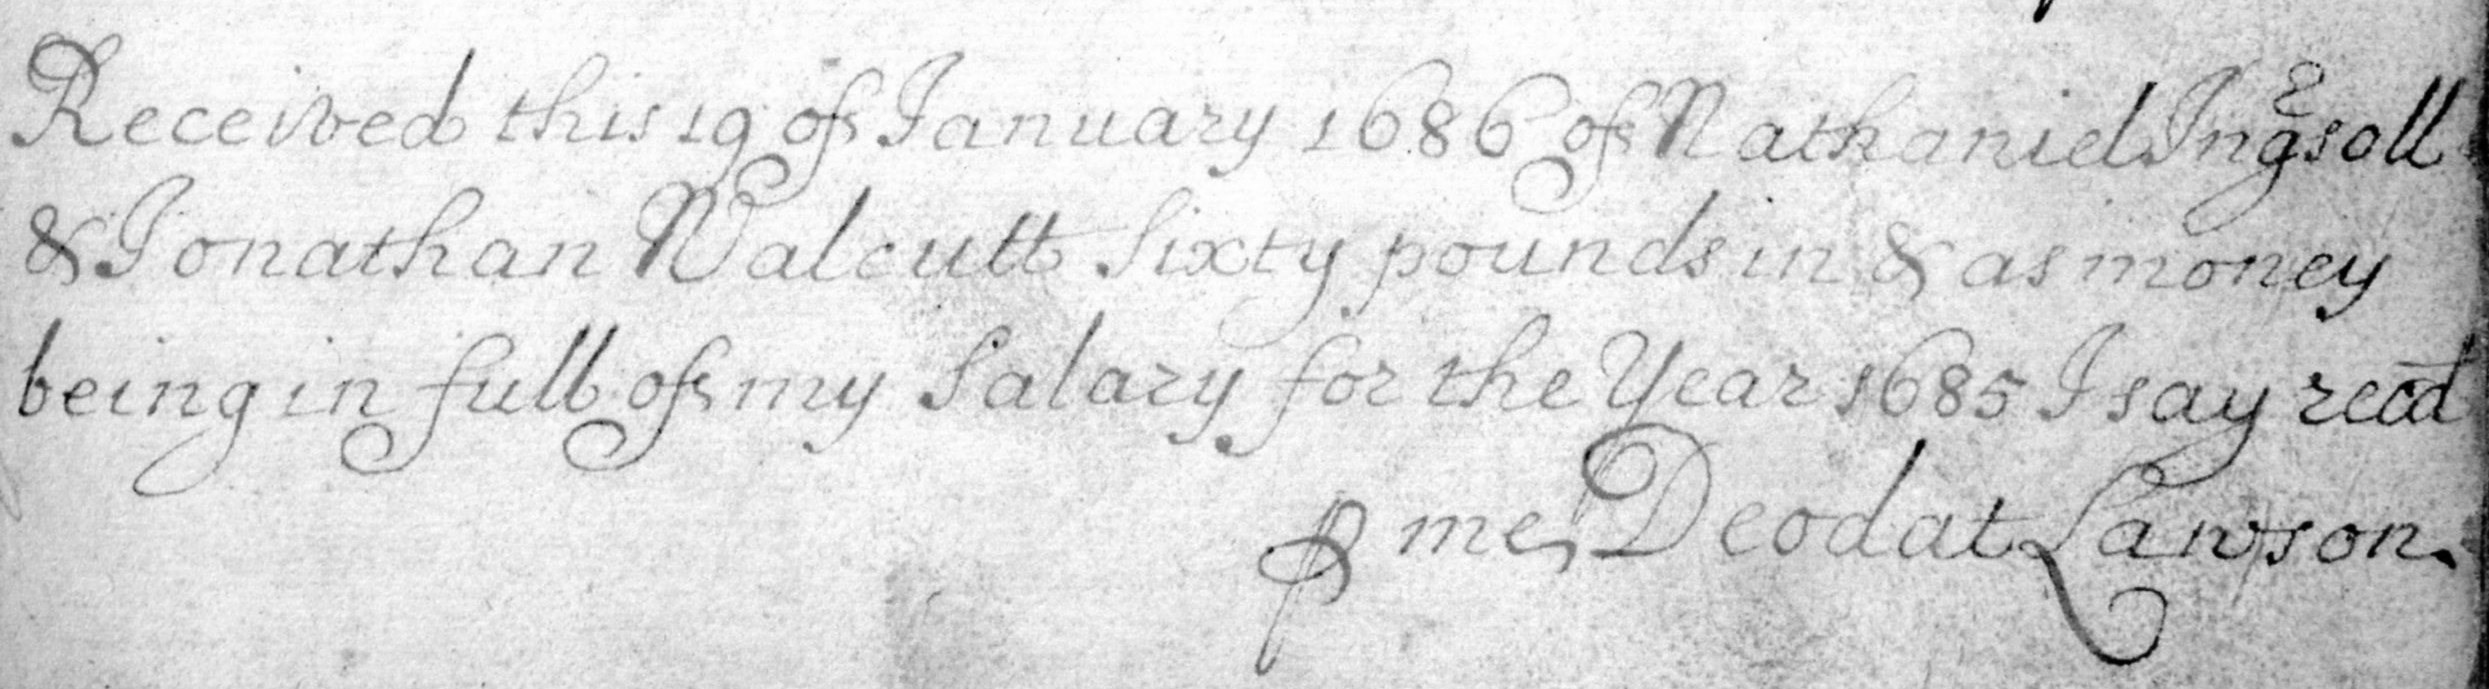 Received this 19 of January 1686 of Nathaniel Ingsoll
& Jonathan Walcutt Sixty pounds in & as money
being in full of my Salary for the Year 1685 I say recd
ꝑ me, Deodat Lawson.